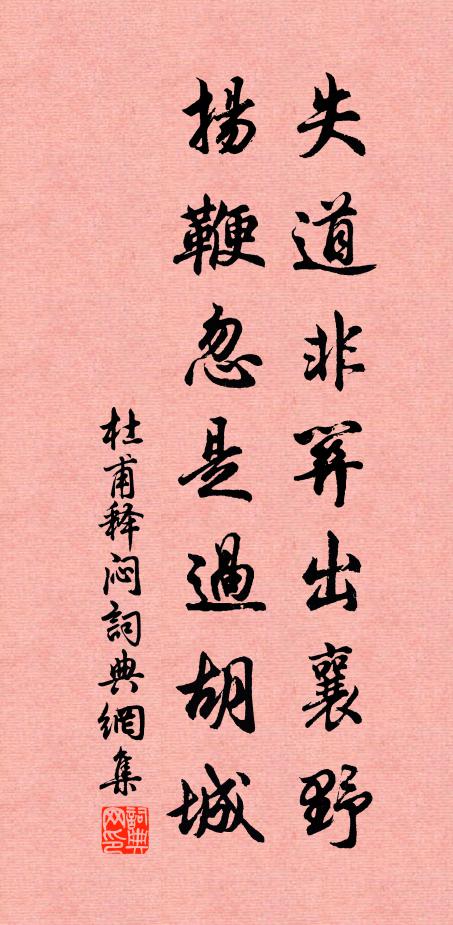 失道非關出襄野
揚鞭忽是過胡城
杜甫释闷詞典網集
詞典网印